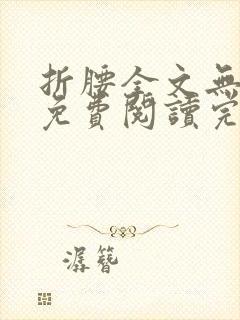 折腰全文無
免費閱讀完
潺簪